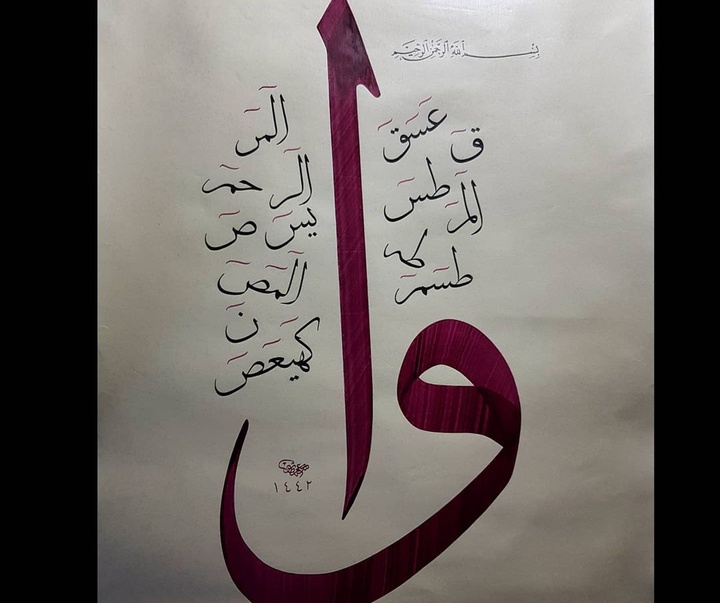 بسم الله الرحمن الرحيم
ق عسق
طس
الم
طه
طسم
المر
الر حم
يس ص
المص
ن
كهيعص
وا
١٤٤٢